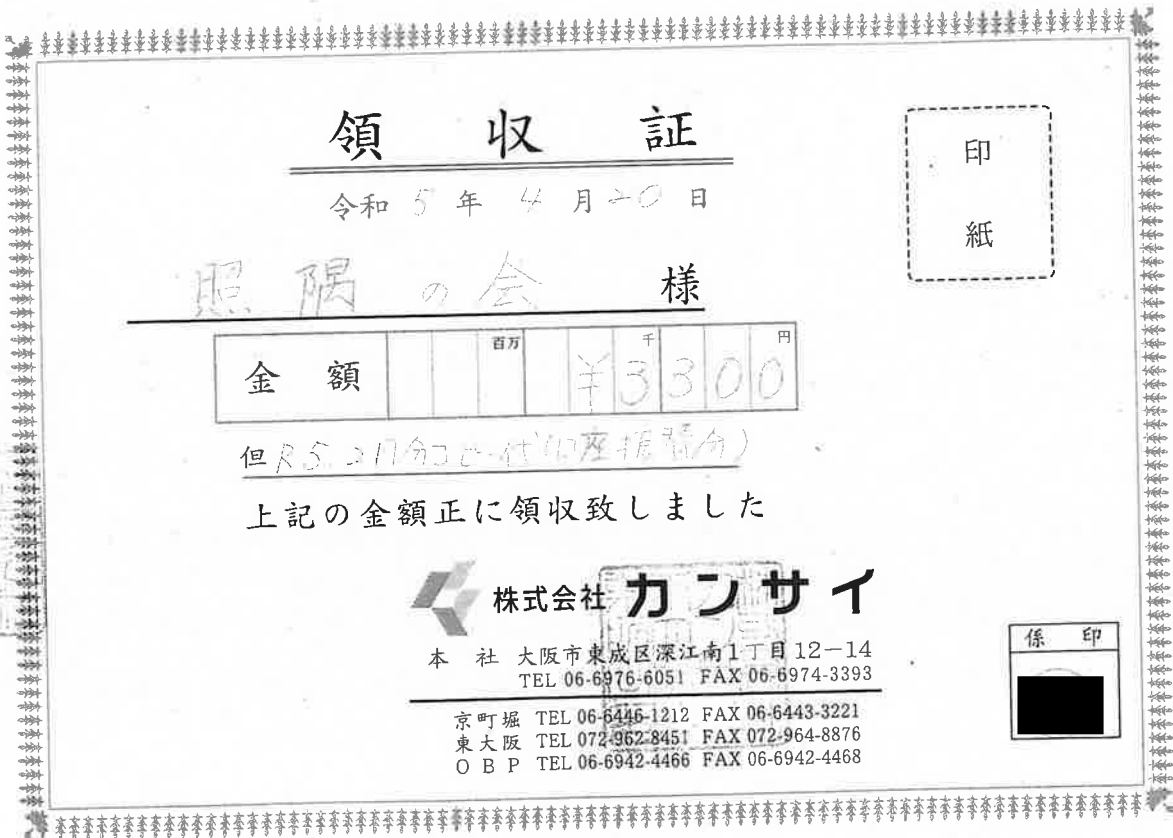 領収証
印紙
令和5年4月20日
照隅の会 様
金額 百万 千 円
¥3300
但 R5.2月分コピー代(口座振替分)
上記の金額正に領収致しました
株式会社カンサイ
本社 大阪市東成区深江南1丁目12-14
TEL 06-6976-6051 FAX 06-6974-3393
京町堀 TEL 06-6446-1212 FAX 06-6443-3221
東大阪 TEL 072-962-8451 FAX 072-964-8876
OBP TEL 06-6942-4466 FAX 06-6942-4468
係印